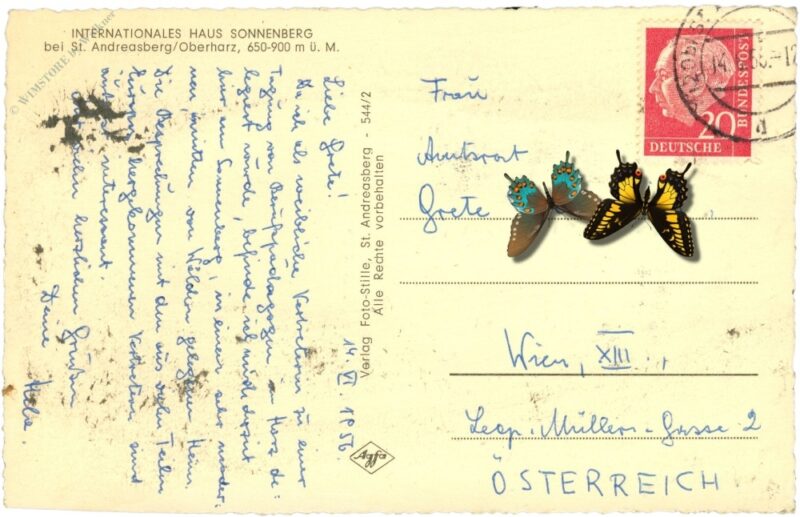 INTERNATIONALES HAUS SONNENBERG
bei St. Andreasberg/Oberharz, 650-900 m ü. M.
© WIMSTORE
14. VI. 1956
Liebe Grete!
Da ich als weibliche Vertreterin zu einer
Tagung von Berufspädagogen im Harz de-
legiert wurde, befinde ich mich derzeit
hier am Sonnenberg, in einem sehr moder-
nen, mitten von Wäldern gelegenen Heim.
Die Besprechungen mit den aus vielen Teilen
Europas hergekommenen Vertretern sind
interessant
herzlichen Grüßen
Deine
Hela.
Verlag Foto-Stille, St. Andreasberg - 544/2
Alle Rechte vorbehalten
Agfa
DEUTSCHE
BUNDESPOST
20
Frau
Amtsrat
Grete
Wien, XIII.,
Leop. Müller-Gasse 2
ÖSTERREICH